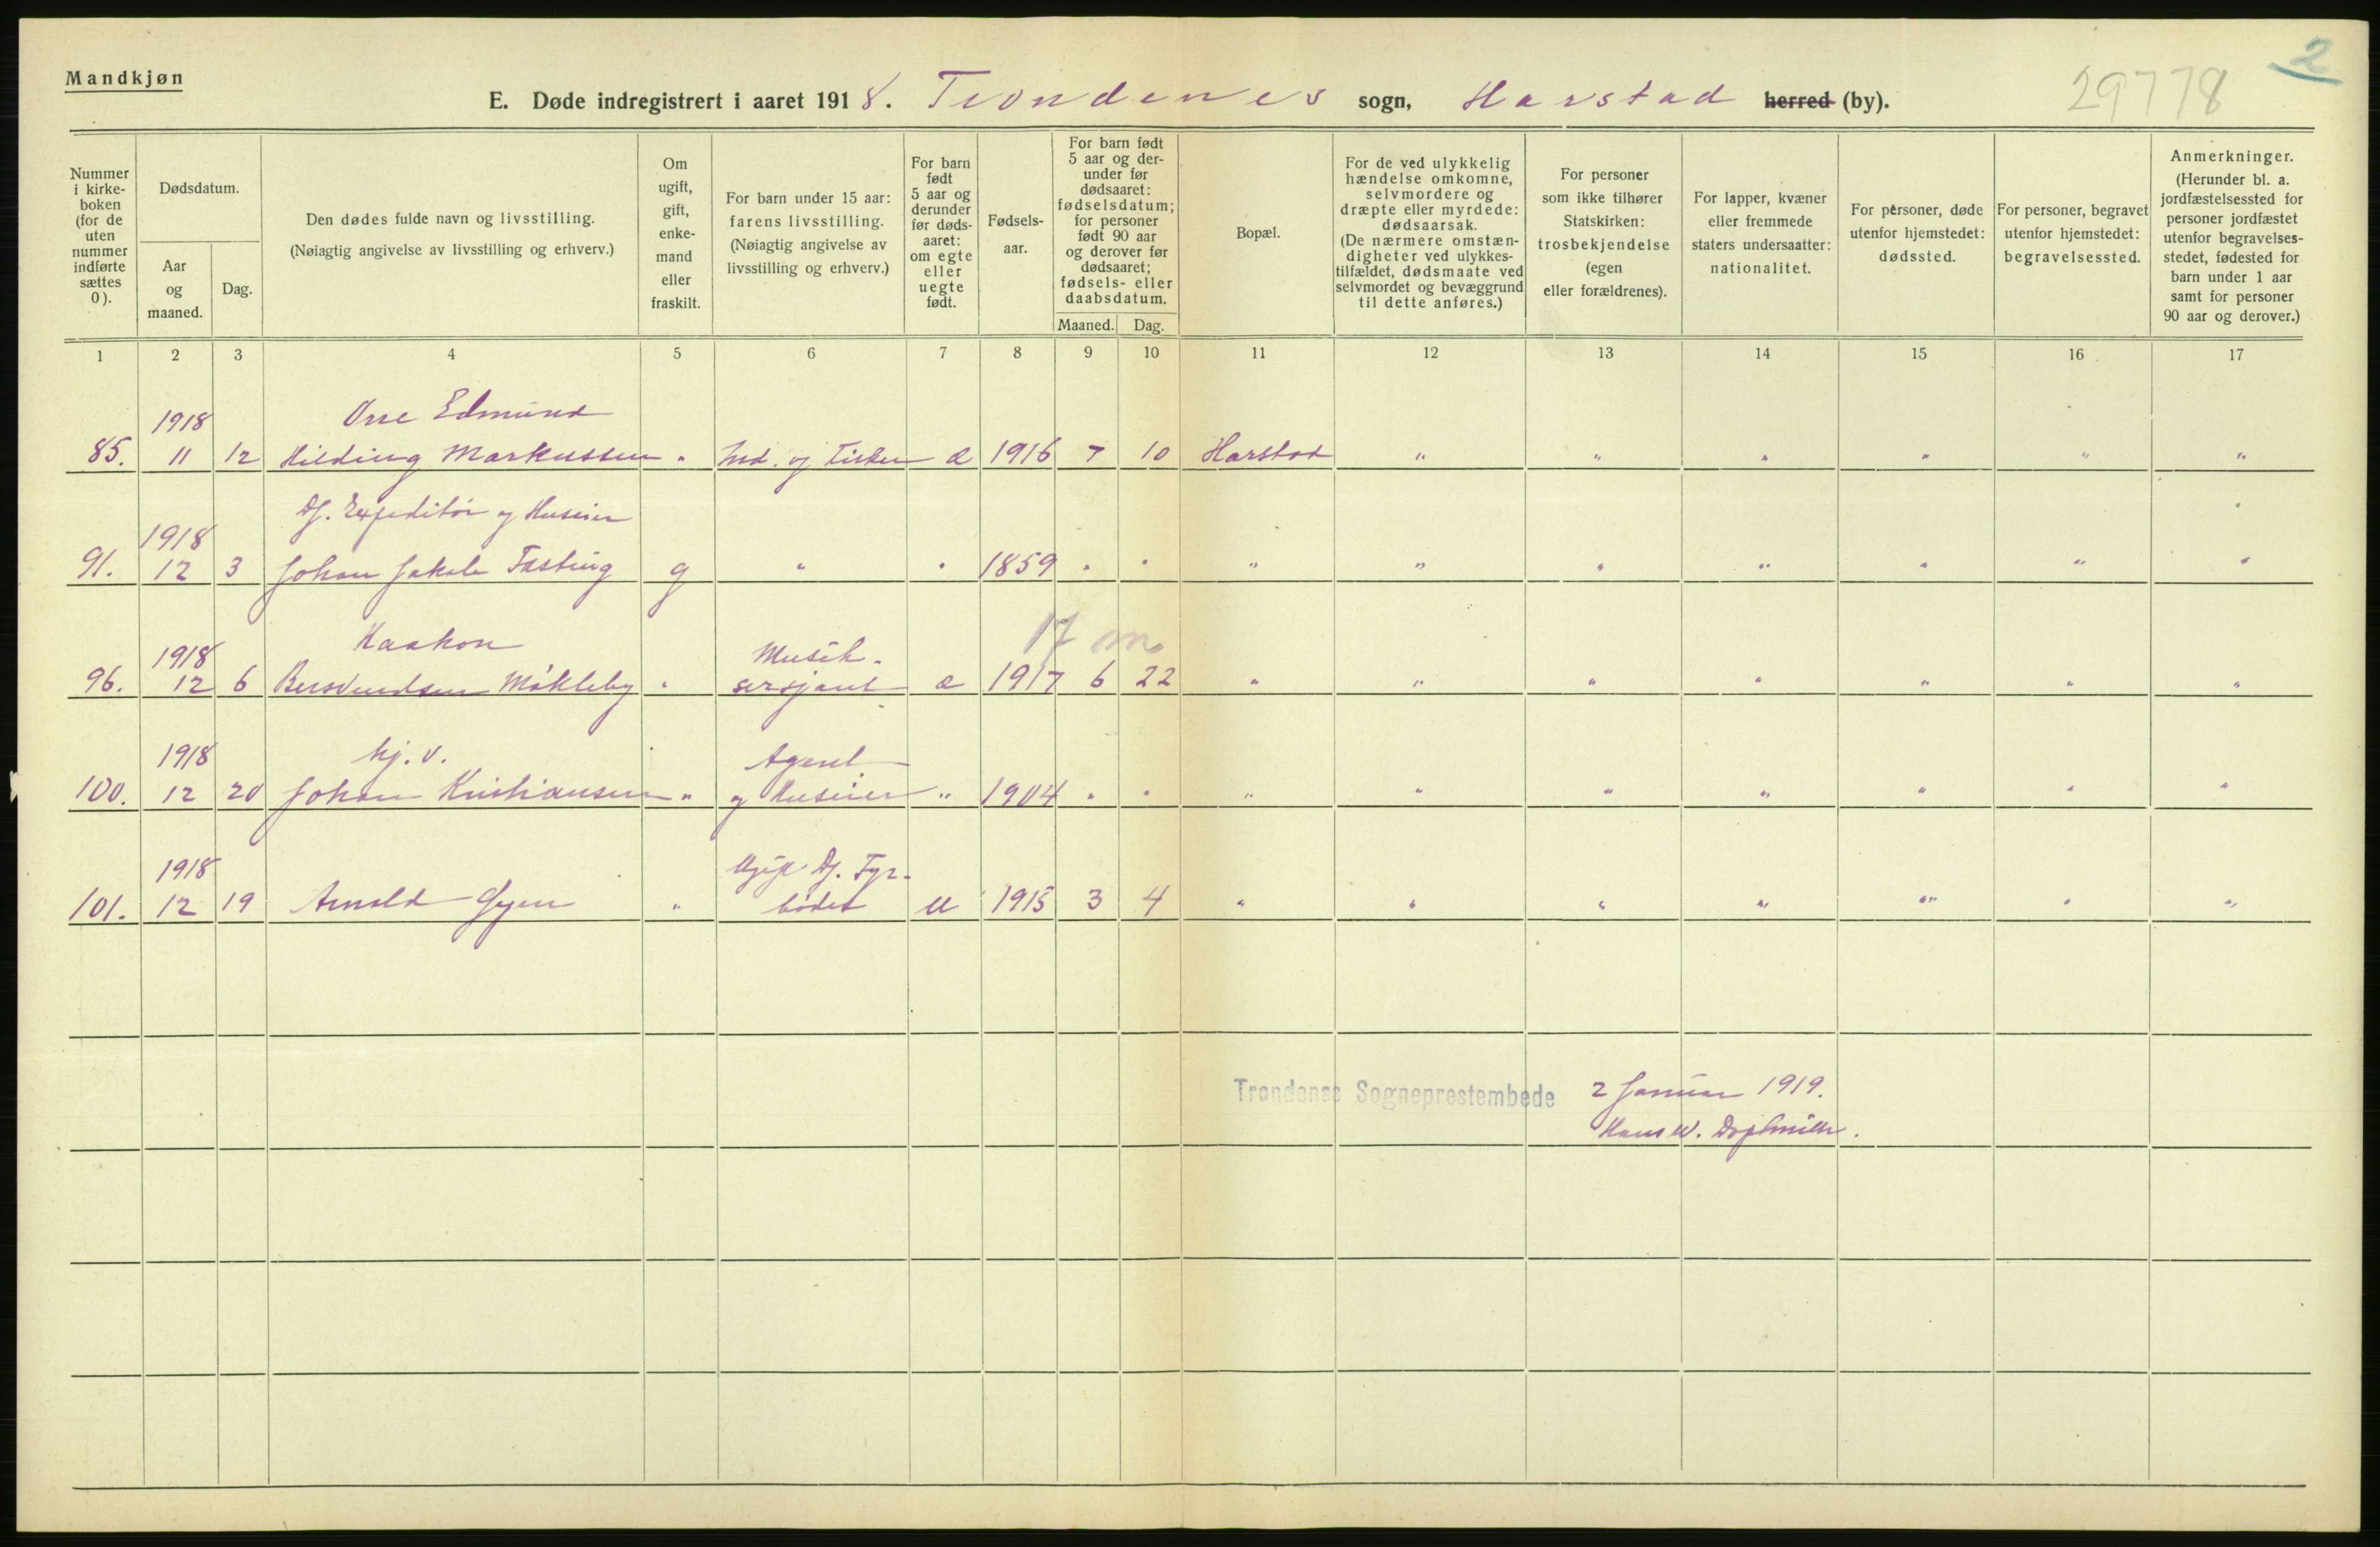 Mandkjøn
2
29778
E. Døde indregistrert i aaret 1918. Trondenes sogn, Harstad herred (by).
Nummer i kirke- boken (for de uten nummer indførte sættes 0).
Dødsdatum.
Aar og maaned.
Dag.
Den dødes fulde navn og livsstilling.
(Nøiagtig angivelse av livsstilling og erhverv.)
Om ugift, gift, enke- mand eller fraskilt.
For barn under 15 aar: farens livsstilling. (Nøiagtig angivelse av livsstilling og erhverv.)
For barn født 5 aar og derunder før døds- aaret: om egte eller uegte født.
Fødsels- aar.
For barn født 5 aar og der- under før dødsaaret: fødselsdatum; for personer født 90 aar og derover før dødsaaret; fødsels- eller daabsdatum.
Maaned. Dag.
Bopæl.
For de ved ulykkelig hændelse omkomne, selvmordere og dræpte eller myrdede: dødsaarsak. (De nærmere omstæn- digheter ved ulykkes- tilfældet, dødsmaate ved selvmordet og bevæggrund til dette anføres.)
For personer som ikke tilhører Statskirken: trosbekjendelse (egen eller forældrenes).
For lapper, kvæner eller fremmede staters undersaatter: nationalitet.
For personer, døde utenfor hjemstedet: dødssted.
For personer, begravet utenfor hjemstedet: begravelsessted.
Anmerkninger. (Herunder bl. a. jordfæstelsessted for personer jordfæstet utenfor begravelses- stedet, fødested for barn under 1 aar samt for personer 90 aar og derover.)
1 2 3 4 5 6 7 8 9 10 11 12 13 14 15 16 17
1918 Edmund
85. 11 12 Hilding Markussen " og Fisker e 1916 7 10 Harstad " " " " " "
Expeditør og Huseier
1918
91. 12 3 Johan Jakob Fasting g " " 1859 " " " " " " " " "
Haakon 17 m
1918 Musik-
96. 12 6 Bersvendsen Møkleby " sersjant e 1917 6 22 " " " " " " "
1918 hj. v. Agent
100. 12 20 Johan Kristiansen " og Huseier " 1904 " " " " " " " " "
1918 Ugift
101. 12 19 Arnold " bødet u 1915 3 4 " " " " " " "
Trondenes Sogneprestembede 2 Januar 1919.
Hans W.